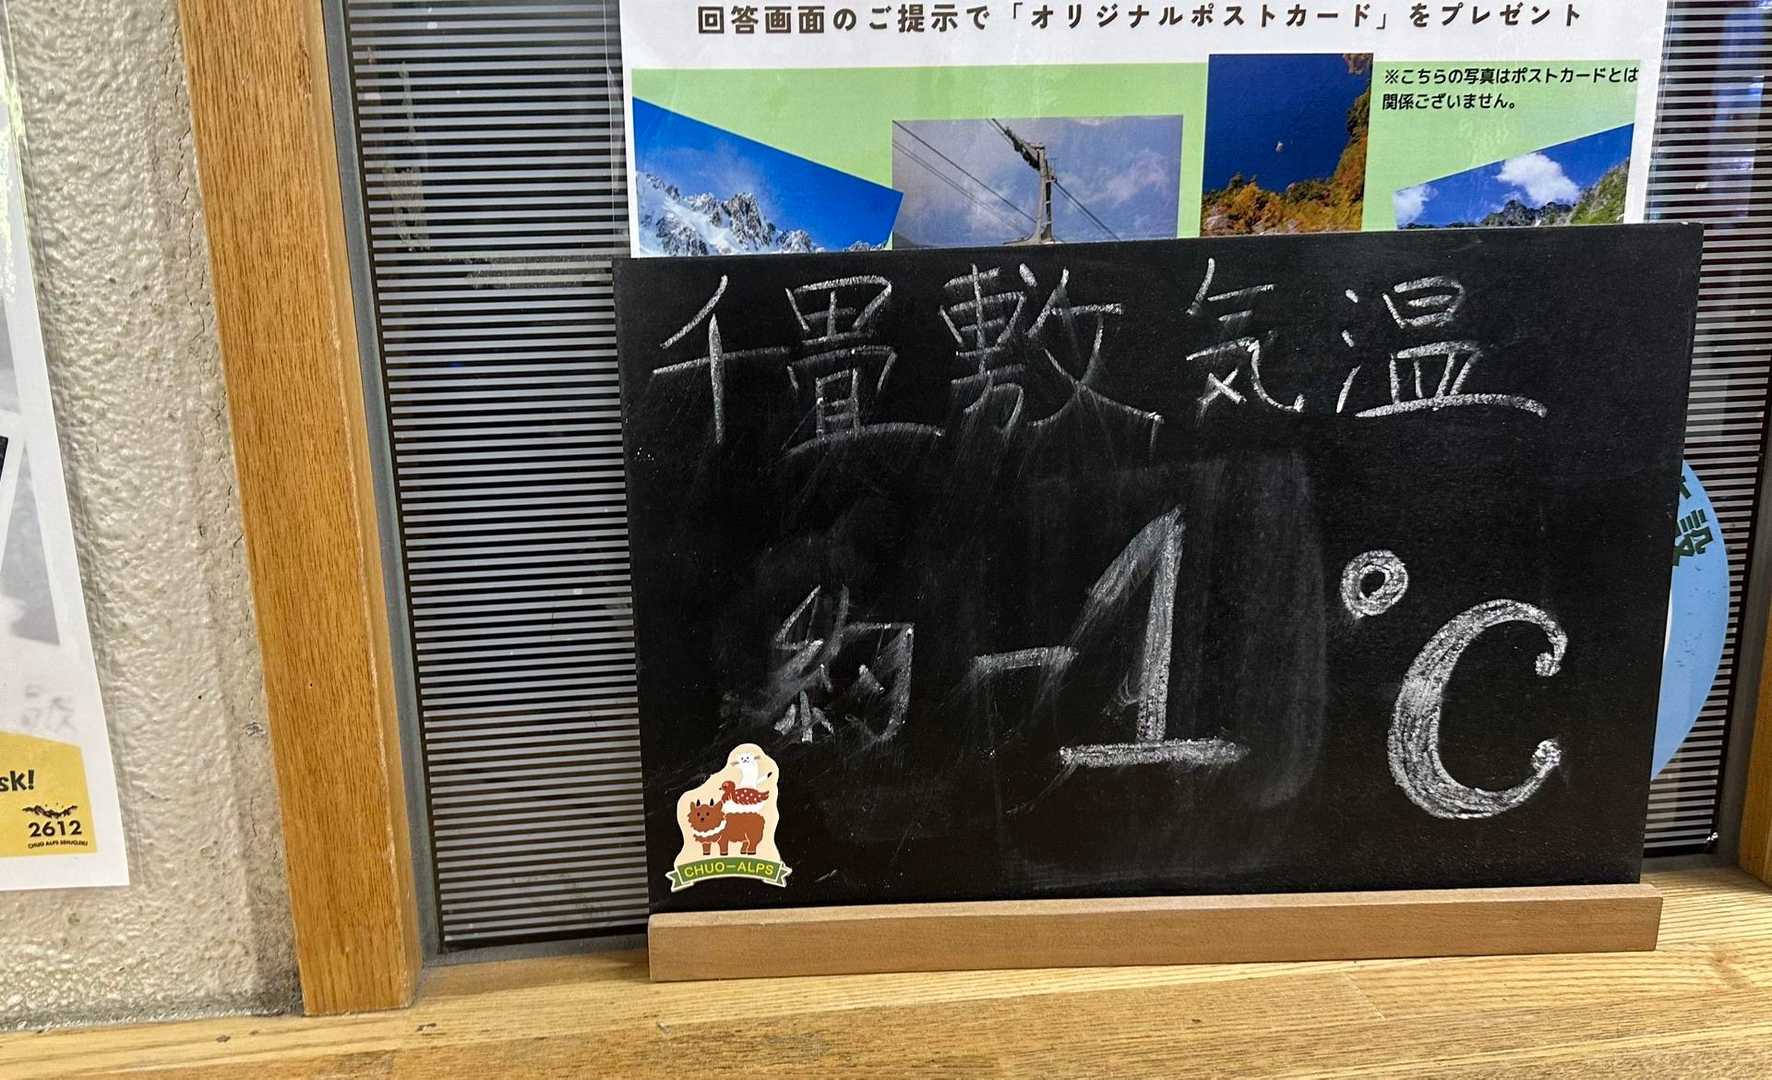 回答画面のご提示で「オリジナルポストカード」をプレゼント
※こちらの写真はポストカードとは
関係ございません。
千畳敷気温
約-1℃
CHUO-ALPS
sk!
2612
CHUO ALPS SENJOJIKI
設